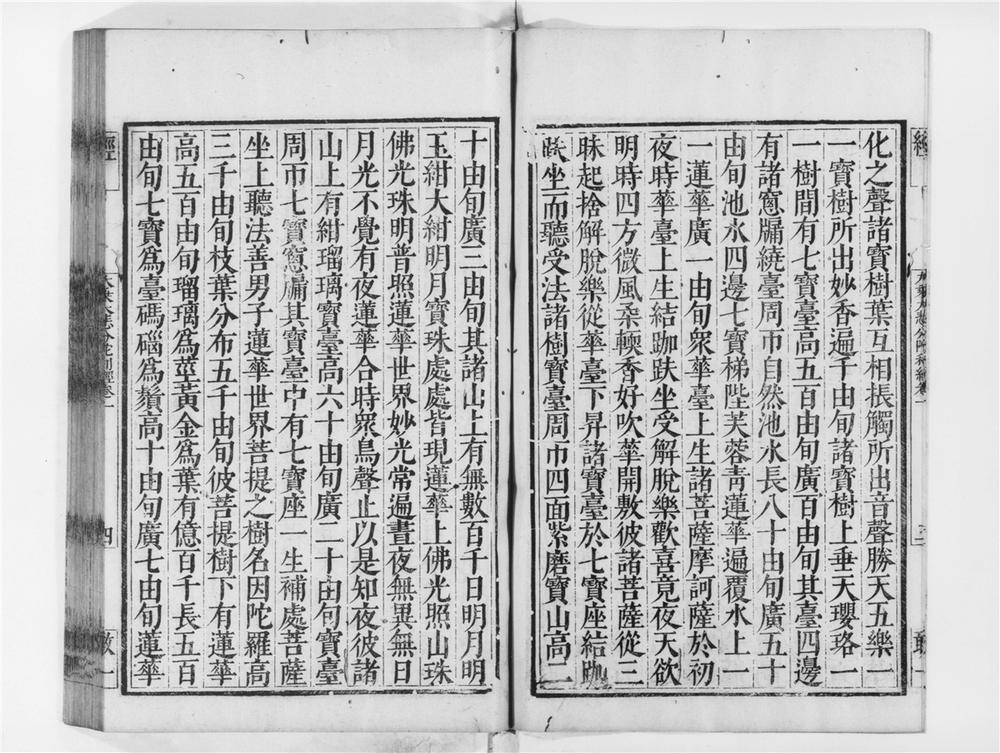 化之聲諸寶樹葉互相振觸所出音聲勝天五樂一
一寶樹所出妙香遍千由旬諸寶樹上垂天瓔珞一
一樹間有七寶臺高五百由旬廣百由旬其臺四邊
有諸窻牖繞臺周帀自然池水長八十由旬廣五十
由旬池水四邊七寶梯陛芙蓉靑蓮華遍覆水上一
一蓮華廣一由旬衆華臺上生諸菩薩摩訶薩於初
夜時華臺上生結跏趺坐受解脫樂歡喜竟夜天欲
明時四方微風柔輭香好吹華開敷彼諸菩薩從三
昧起捨解脫樂從華臺下昇諸寶臺於七寶座結跏
趺坐而聽受法諸樹寶臺周帀四面紫磨寶山高二
十由旬廣三由旬其諸山上有無數百千日明月明
玉紺大紺明月寶珠處處皆現蓮華上佛光照山珠
佛光珠明普照蓮華世界妙光常遍晝夜無異無日
月光不覺有夜蓮華合時衆鳥聲止以是知夜彼諸
山上有紺瑠璃寶臺高六十由旬廣二十由旬寶臺
周帀七寶窻牖其寶臺中有七寶座一生補處菩薩
坐上聽法善男子蓮華世界菩提之樹名因陀羅高
三千由旬枝葉分布五千由旬彼菩提樹下有蓮華
高五百由旬瑠璃爲莖黃金爲葉有億百千長五百
由旬七寶爲臺碼碯爲鬚高十由旬廣七由旬蓮華
經
四
一